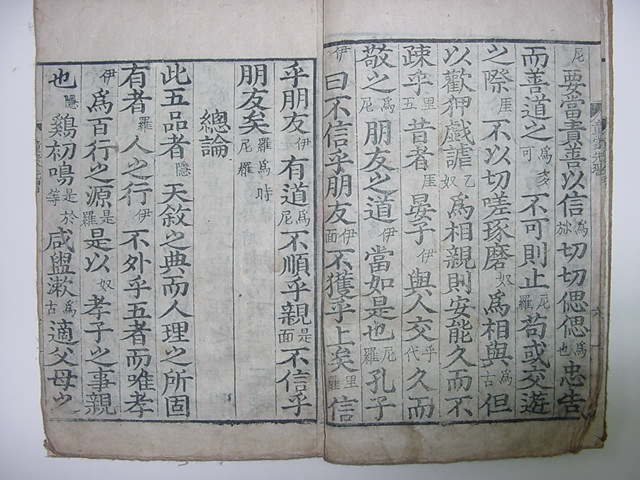 尼要當責善以信為㫆切切偲偲為也忠告
而善道之為多可不可則止尼羅苟或交遊
之際厓不以切嗟琢磨奴為相與為古但
以歡狎戲謔乙奴為相親則安能久而不
疎乎里五昔者厓晏子伊與人交乎代久而
敬之為尼朋友之道伊當如是也尼羅孔子
伊曰不信乎朋友伊面不獲乎上矣里羅信
乎朋友伊有道為尼不順乎親是面不信乎
朋友矣羅為時尼羅
總論
此五品者隱天敘之典而人理之所固
有者羅人之行伊不外乎五者而唯孝
伊為百行之源是羅是以奴孝子之事親
也隱鷄初鳴是於等咸盥漱為古適父母之